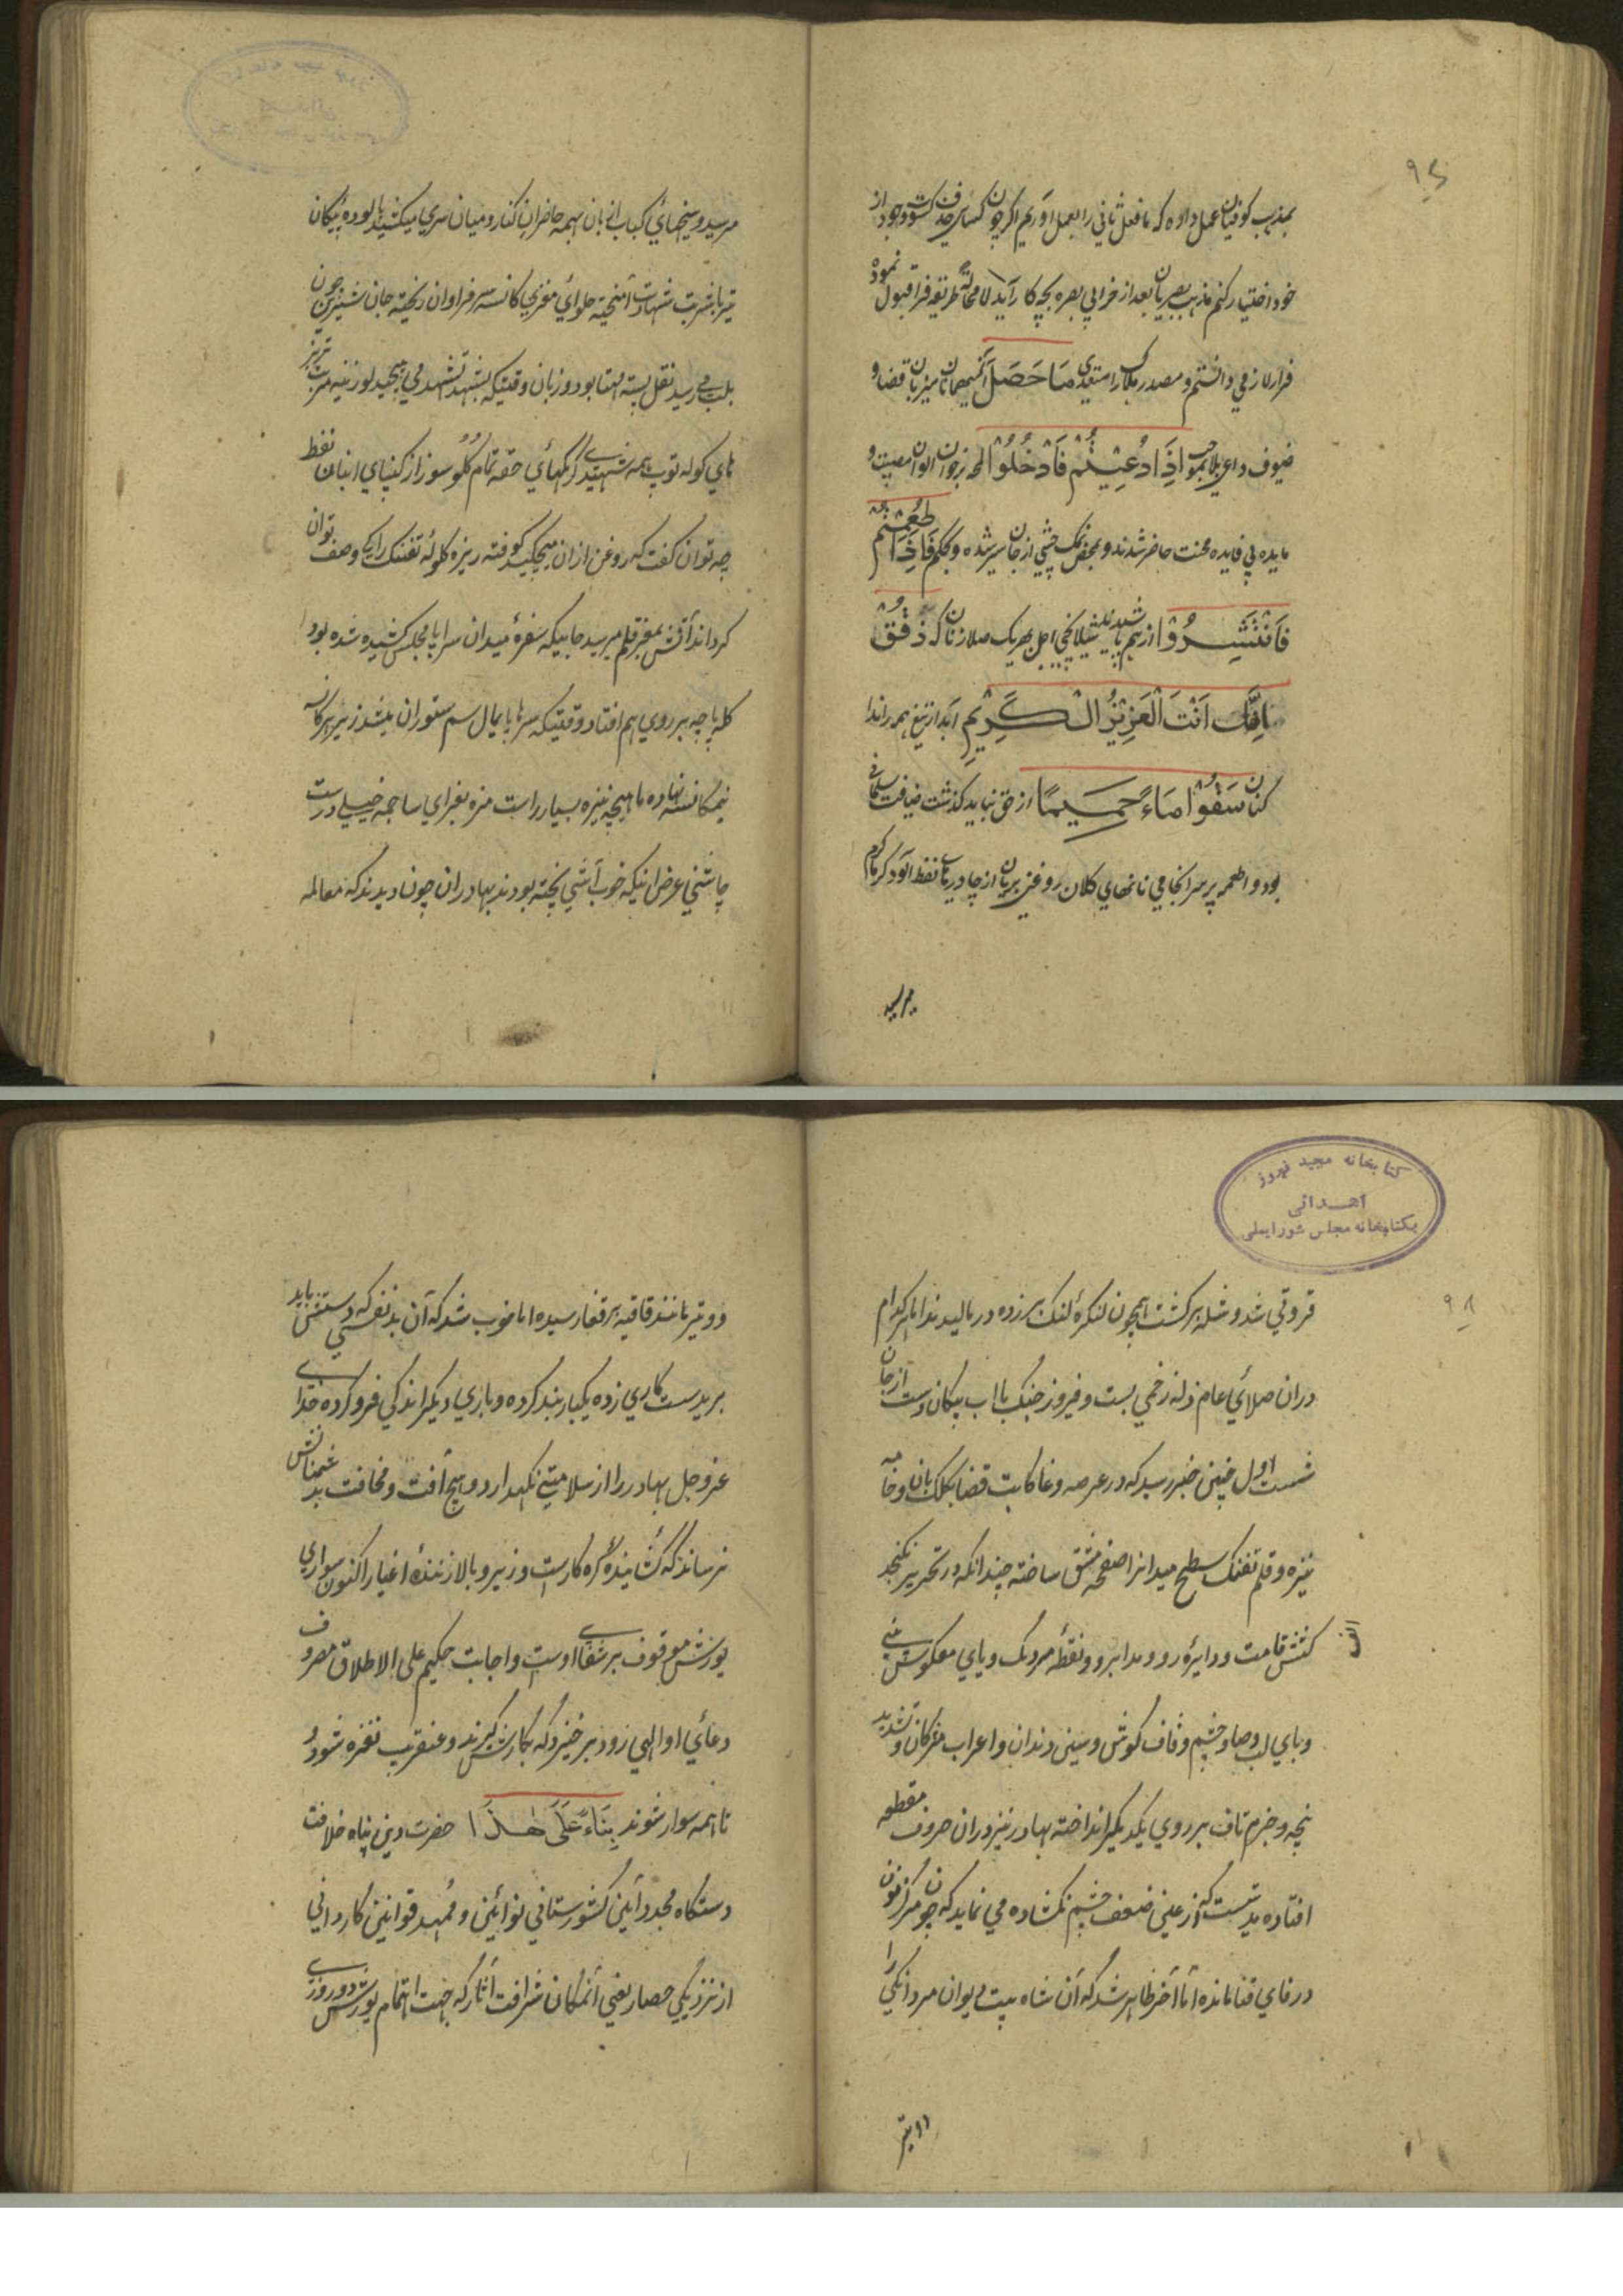 ۹۷
بمذهب کوفیان عمل داده که ما فعل ثانی را بعمل آوریم اگر چون کسائی حذف گشته وجود از
خود اختیار کنم مذهب بصریان بعد از خرابی بصره بچه کار آید لا محالة طریقه فرا قبول نموده
فرار لازمی دانستم و مصدر هلاک را متعدی مَا حَصَلْ آنکه میهمانان میزبان قضا و
ضیوف داعی بلا بموجب اِذَا دُعِیْتُمْ فَادْخُلُوْا بر خوان الوان مصیبت و
مایده بی فایده محنت حاضر شدند و بمحض نمک چشی از جان سیر شده و بحکم فَاِذَا طَعِمْتُمْ
فَانْتَشِرُوْا از هم پاشیدند شیلانچی اجل بهر یک صلازنان که ذُقْ
اِنَّكَ اَنْتَ الْعَزِیْزُ الْكَرِیْمِ آبدار تیغ همه را ندا
کنان سُقُوْا مَاءً حَمِیْمًا از حق نباید گذشت ضیافت سلیمانی
بود و اطعمه پر سرانجامی نانهای کلان روغنی بریان از چادرهای نفط آلود گرماگرم
میرسید
میرسید و سیخهای کباب از بان همه حاضران کنار و میان سری میکشید پالوده پیکان
تیر با شربت شهادت آمیخته حلوای مغزی کاسه سر فراوان ریخته جان شیرین چون
بلب می رسید نقل پسته مهیا بود و زبان وقتیکه بشهد تشهد می پیچید لوزینه مرتب تربز
های گوله توپ همه شهیدی رگهای حقه تمام گلوسوز از کیپای انبان نفط
چه توان گفت که روغن از ان میچکید کوفته ریزه گلوله تفنک را کجا وصف توان
کرد اندآتش بمغز قلم میرسید جاییکه سفره میدان سراپا مجلس کشیده شده بود
کله پاچه بر روی هم افتاد وقتیکه سرها پایمال سم ستوران میشد زیر هر کاسه
نیمکاسه نهاده ماهیچه نیزه بسیار راست مزه بغرای ساچمه خیلی درست
چاشنی غرض اینکه خوب آشی پخته بودند بهادران چون دیدند که معامله
کتابخانه مجید فیروز
اهدائی
بکتابخانه مجلس شورایملی
۹۸
قروتی شد و شله برگشت همچون لنگره لنک بر زده در مالیدند اما هر کدام
دران صلای عام زله زخمی بست و فیروز جنگ با آب پیکان دست از جان
شست اول چنین خبر رسید که در عرصه وغا کاتب قضا بکلک بان و خامه
نیزه و قلم تفنک سطح میدانرا صفحه مشق ساخته چندانکه در تحریر نگنجد
الف
کشش قامت و دایره رو و مد ابرو و نقطه مردمک و یای معکوس بینی
و بای لب و صاد چشم و قاف گوش و سین دندان و اعراب مژگان و تشدید
پنجه و جزم ناف بر روی یکدیگر انداخته بهادر نیز دران حروف مقطعه
افتاده بدست کز عین ضعف چشم نکشاده می نماید که چون مرکز نون
در فای فنا مانده اما آخر ظاهر شد که آن شاه بیت دیوان مردانگی را
دو تیر
دو تیر مانند قافیه بر قفا رسیده اما خوب شد که آن بد نفسی که دستش باید
برید دست کاری زده یکبار بند کرده و باری دیگر اندکی فرو کرده خدای
عز و جل بهادر را از سلامتی نگهدارد و هیچ آفت و مخافت بدشمنانش
نرساند که گشاینده گره کارست و زیر و بالا زننده اغیار اکنون سواری
یورش موقوف بر شفای اوست و اجابت حکیم علی الاطلاق مصروف
دعای او الهی زود برخیزد که بکارش گیرند و عنقریب نفره شود
تا همه سوار شوند بِنَاءً عَلَی هٰذَا حضرت دین پناه خلافت
دستگاه مجدد آئین کشورستانی نوآئین و ممهد قوانین کاردانی
از نزدیکی حصار یعنی آنمکان شرافت آثار که جهت اتمام یورش دو روزی